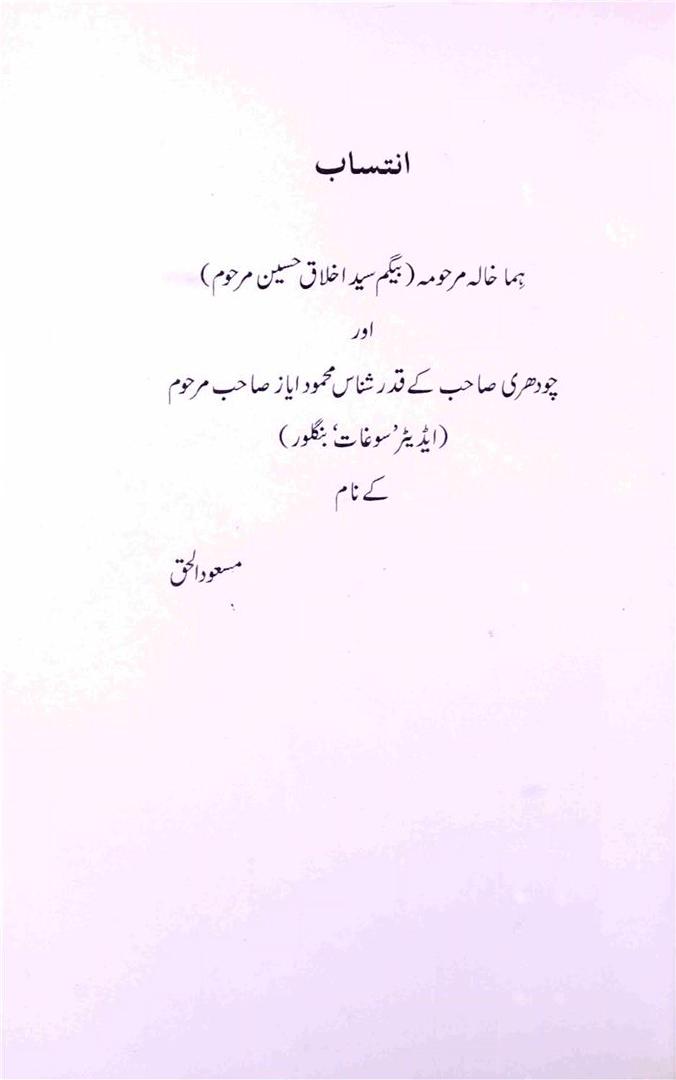 انتساب
ہِما خالہ مرحومہ (بیگم سید اخلاق حسین مرحوم)
اور
چودھری صاحب کے قدر شناس محمود ایاز صاحب مرحوم
(ایڈیٹر ’سوغات‘ بنگلور)
کے نام
مسعود الحق